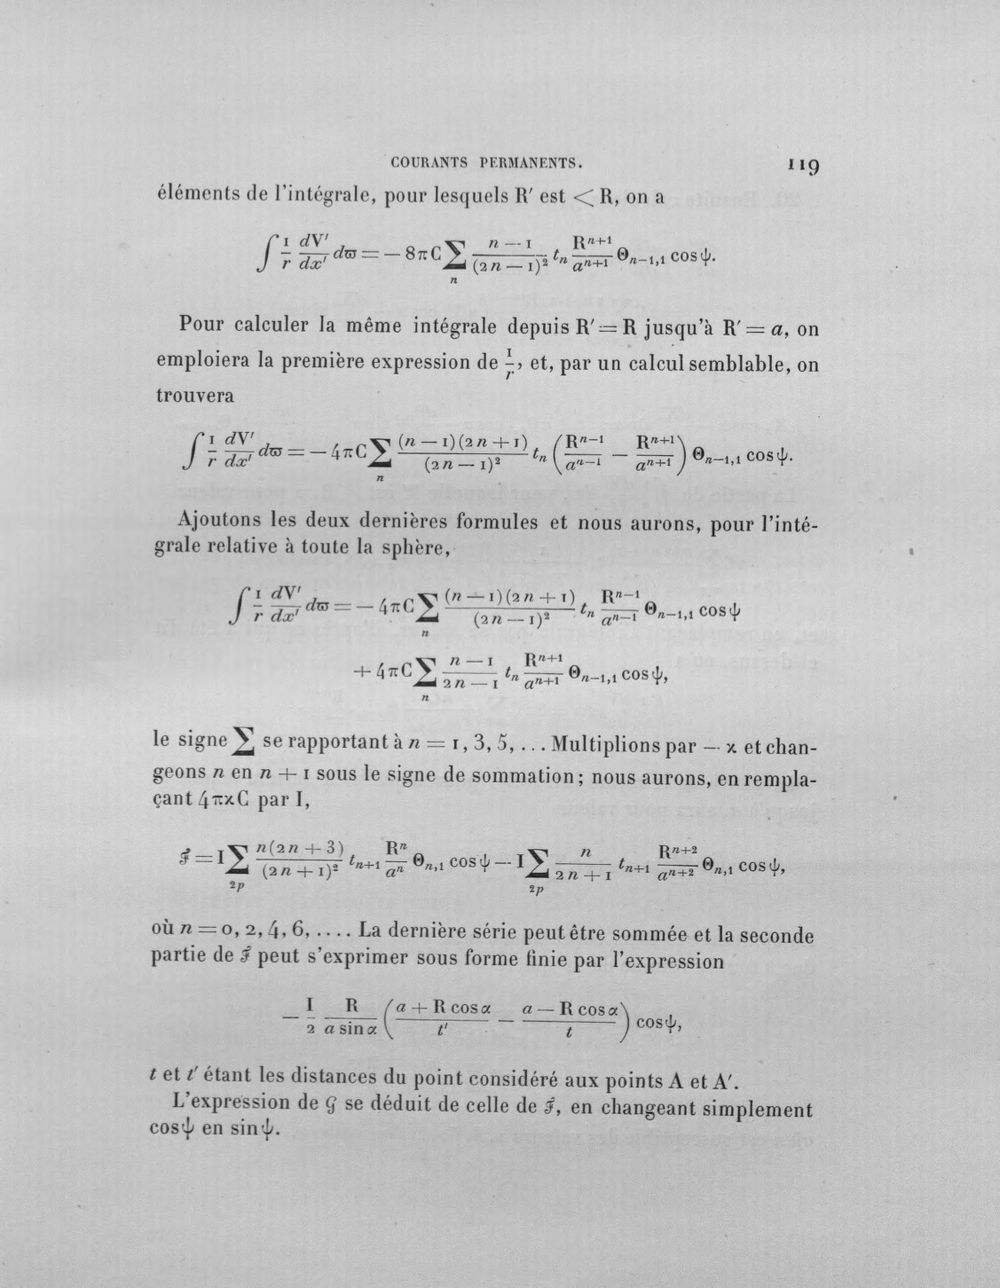 COURANTS PERMANENTS. 119
éléments de l'intégrale, pour lesquels R′ est < R, on a
∫ 1/r dV′/dx′ dϖ = — 8πC ∑_n (n — 1)/(2n — 1)² t_n R^{n+1}/a^{n+1} Θ_{n—1,1} cos ψ.
Pour calculer la même intégrale depuis R′ = R jusqu'à R′ = a, on
emploiera la première expression de 1/r, et, par un calcul semblable, on
trouvera
∫ 1/r dV′/dx′ dϖ = — 4πC ∑_n (n — 1)(2n + 1)/(2n — 1)² t_n (R^{n—1}/a^{n—1} — R^{n+1}/a^{n+1}) Θ_{n—1,1} cos ψ.
Ajoutons les deux dernières formules et nous aurons, pour l'inté-
grale relative à toute la sphère,
∫ 1/r dV′/dx′ dϖ = — 4πC ∑_n (n — 1)(2n + 1)/(2n — 1)² t_n R^{n—1}/a^{n—1} Θ_{n—1,1} cos ψ
+ 4πC ∑_n (n — 1)/(2n — 1) t_n R^{n+1}/a^{n+1} Θ_{n—1,1} cos ψ,
le signe ∑ se rapportant à n = 1, 3, 5, ... Multiplions par — ϰ et chan-
geons n en n + 1 sous le signe de sommation; nous aurons, en rempla-
çant 4πϰC par I,
ℱ = I ∑_{2p} n(2n + 3)/(2n + 1)² t_{n+1} R^n/a^n Θ_{n,1} cos ψ — I ∑_{2p} n/(2n + 1) t_{n+1} R^{n+2}/a^{n+2} Θ_{n,1} cos ψ,
où n = 0, 2, 4, 6, .... La dernière série peut être sommée et la seconde
partie de ℱ peut s'exprimer sous forme finie par l'expression
— I/2 R/(a sin α) ((a + R cos α)/t′ — (a — R cos α)/t) cos ψ,
t et t′ étant les distances du point considéré aux points A et A′.
L'expression de 𝒢 se déduit de celle de ℱ, en changeant simplement
cos ψ en sin ψ.